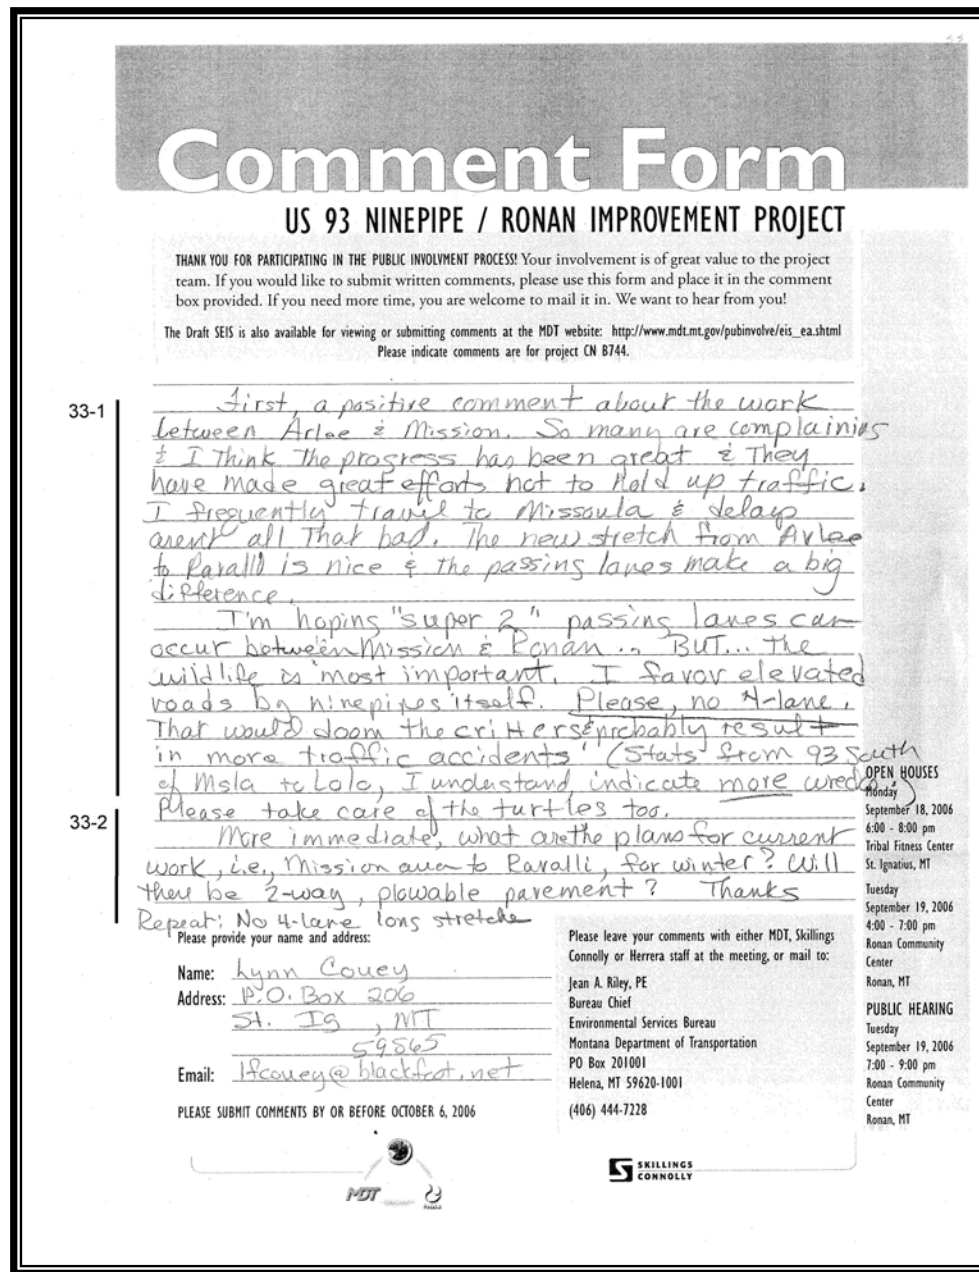 55
Comment Form
US 93 NINEPIPE / RONAN IMPROVEMENT PROJECT
THANK YOU FOR PARTICIPATING IN THE PUBLIC INVOLVMENT PROCESS! Your involvement is of great value to the project
team. If you would like to submit written comments, please use this form and place it in the comment
box provided. If you need more time, you are welcome to mail it in. We want to hear from you!
The Draft SEIS is also available for viewing or submitting comments at the MDT website: http://www.mdt.mt.gov/pubinvolve/eis_ea.shtml
Please indicate comments are for project CN B744.
33-1
First, a positive comment about the work
between Arlee & Mission. So many are complaining
& I think the progress has been great & They
have made great efforts not to hold up traffic.
I frequently travel to Missoula & delays
arent all that bad. The new stretch from Arlee
to Ravalli is nice & the passing lanes make a big
difference.
I'm hoping "super 2" passing lanes can
occur between Mission & Ronan .. BUT... the
wildlife is most important. I favor elevated
roads by ninepipes itself. Please, no 4-lane.
That would doom the critters & probably result
in more traffic accidents! (Stats from 93 South
of Msla to Lolo, I understand, indicate more wrecks.)
Please take care of the turtles too.
33-2
More immediate, what are the plans for current
work, i.e., Mission area to Ravalli, for winter? Will
they be 2-way, plowable pavement? Thanks
Repeat: No 4-lane long stretches
Please provide your name and address:
Name: Lynn Couey
Address: P.O. Box 206
St. Ig, MT
59865
Email: lfcouey@blackfoot.net
PLEASE SUBMIT COMMENTS BY OR BEFORE OCTOBER 6, 2006
Please leave your comments with either MDT, Skillings
Connolly or Herrera staff at the meeting, or mail to:
Jean A. Riley, PE
Bureau Chief
Environmental Services Bureau
Montana Department of Transportation
PO Box 201001
Helena, MT 59620-1001
(406) 444-7228
OPEN HOUSES
Monday
September 18, 2006
6:00 - 8:00 pm
Tribal Fitness Center
St. Ignatius, MT
Tuesday
September 19, 2006
4:00 - 7:00 pm
Ronan Community
Center
Ronan, MT
PUBLIC HEARING
Tuesday
September 19, 2006
7:00 - 9:00 pm
Ronan Community
Center
Ronan, MT
MDT
SKILLINGS
CONNOLLY